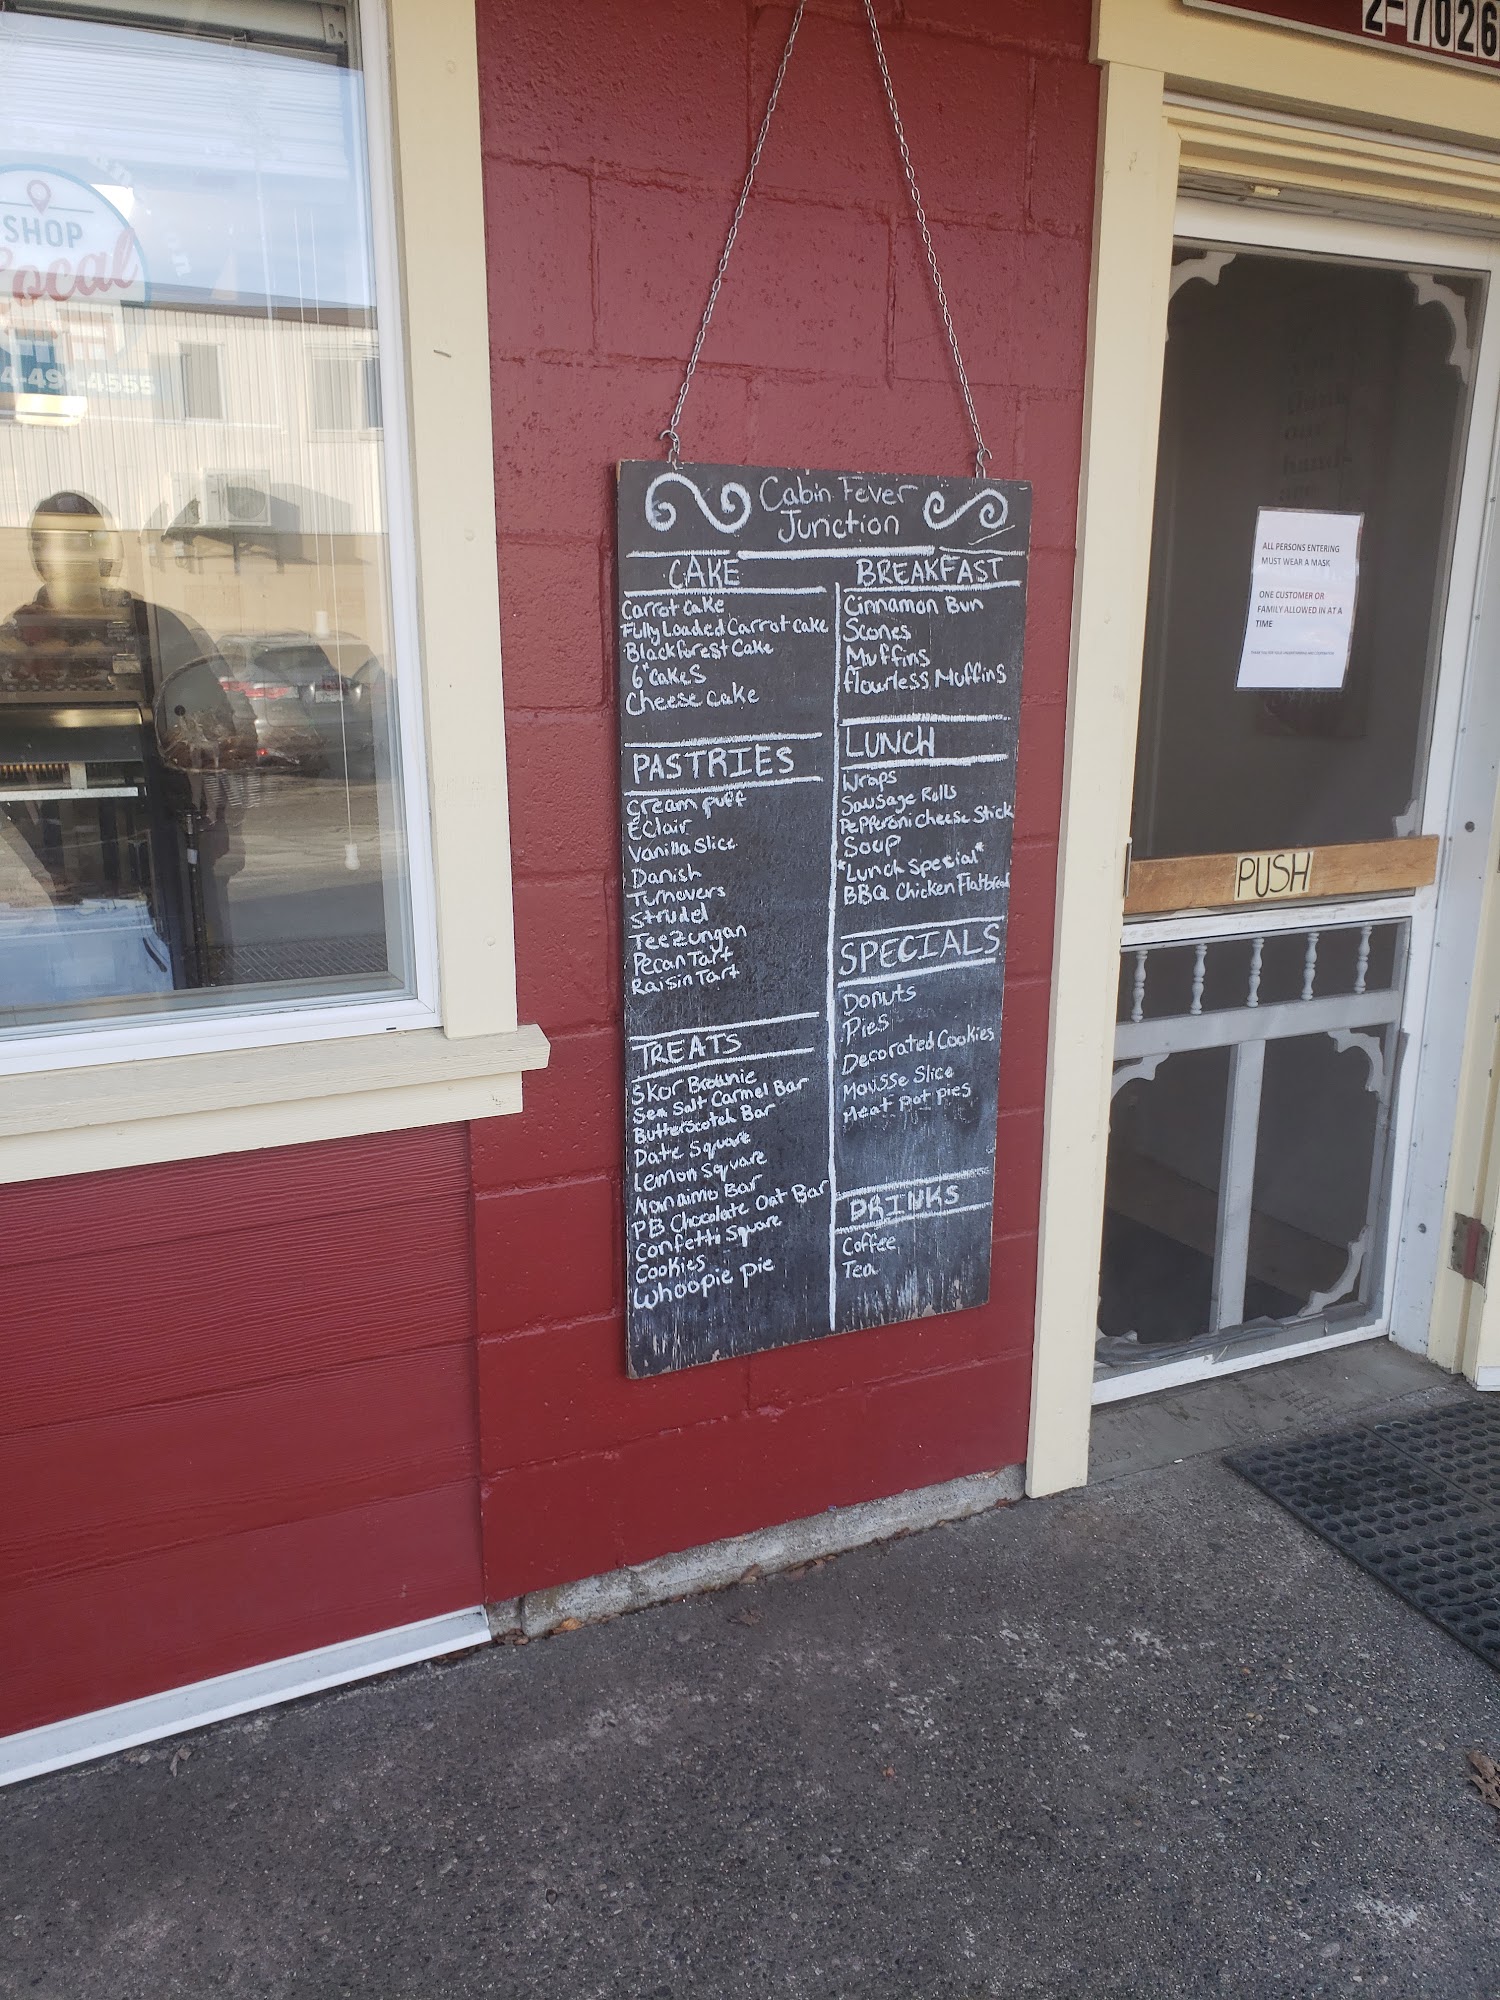 SHOP
Local
4-491-4555
Cabin Fever
Junction
CAKE
Carrot Cake
Fully Loaded Carrot Cake
Blackforest Cake
6" Cakes
Cheese Cake
PASTRIES
Cream puff
Eclair
Vanilla Slice
Danish
Turnovers
Strudel
TeeZungan
Pecan Tart
Raisin Tart
TREATS
Skor Brownie
Sea Salt Carmel Bar
Butterscotch Bar
Date Square
Lemon Square
Nanaimo Bar
PB Chocolate Oat Bar
Confetti Square
Cookies
Whoopie pie
BREAKFAST
Cinnamon Bun
Scones
Muffins
flourless Muffins
LUNCH
Wraps
Sausage Rolls
Pepperoni Cheese Stick
Soup
"Lunch Special"
BBQ Chicken Flatbread
SPECIALS
Donuts
Pies
Decorated Cookies
Mousse Slice
Meat pot pies
DRINKS
Coffee
Tea
2-7026
ALL PERSONS ENTERING
MUST WEAR A MASK
ONE CUSTOMER OR
FAMILY ALLOWED IN AT A
TIME
PUSH